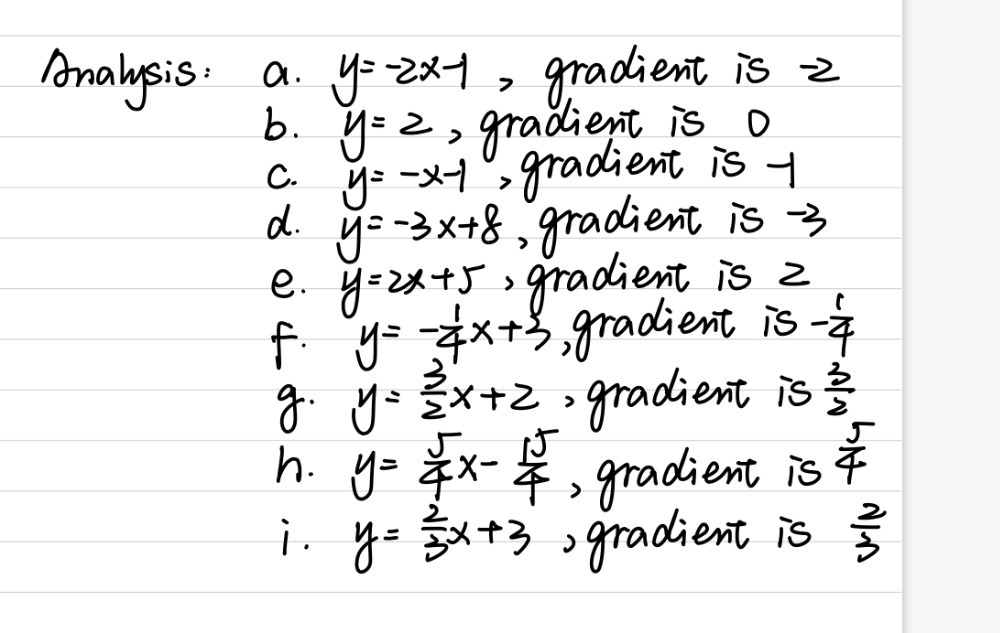 Analysis: a. y=-2x-1, gradient is -2
b. y=2, gradient is 0
c. y=-x-1, gradient is -1
d. y=-3x+8, gradient is -3
e. y=2x+5, gradient is 2
f. y=-1/4x+3, gradient is -1/4
g. y=3/2x+2, gradient is 3/2
h. y=5/4x-15/4, gradient is 5/4
i. y=2/3x+3, gradient is 2/3